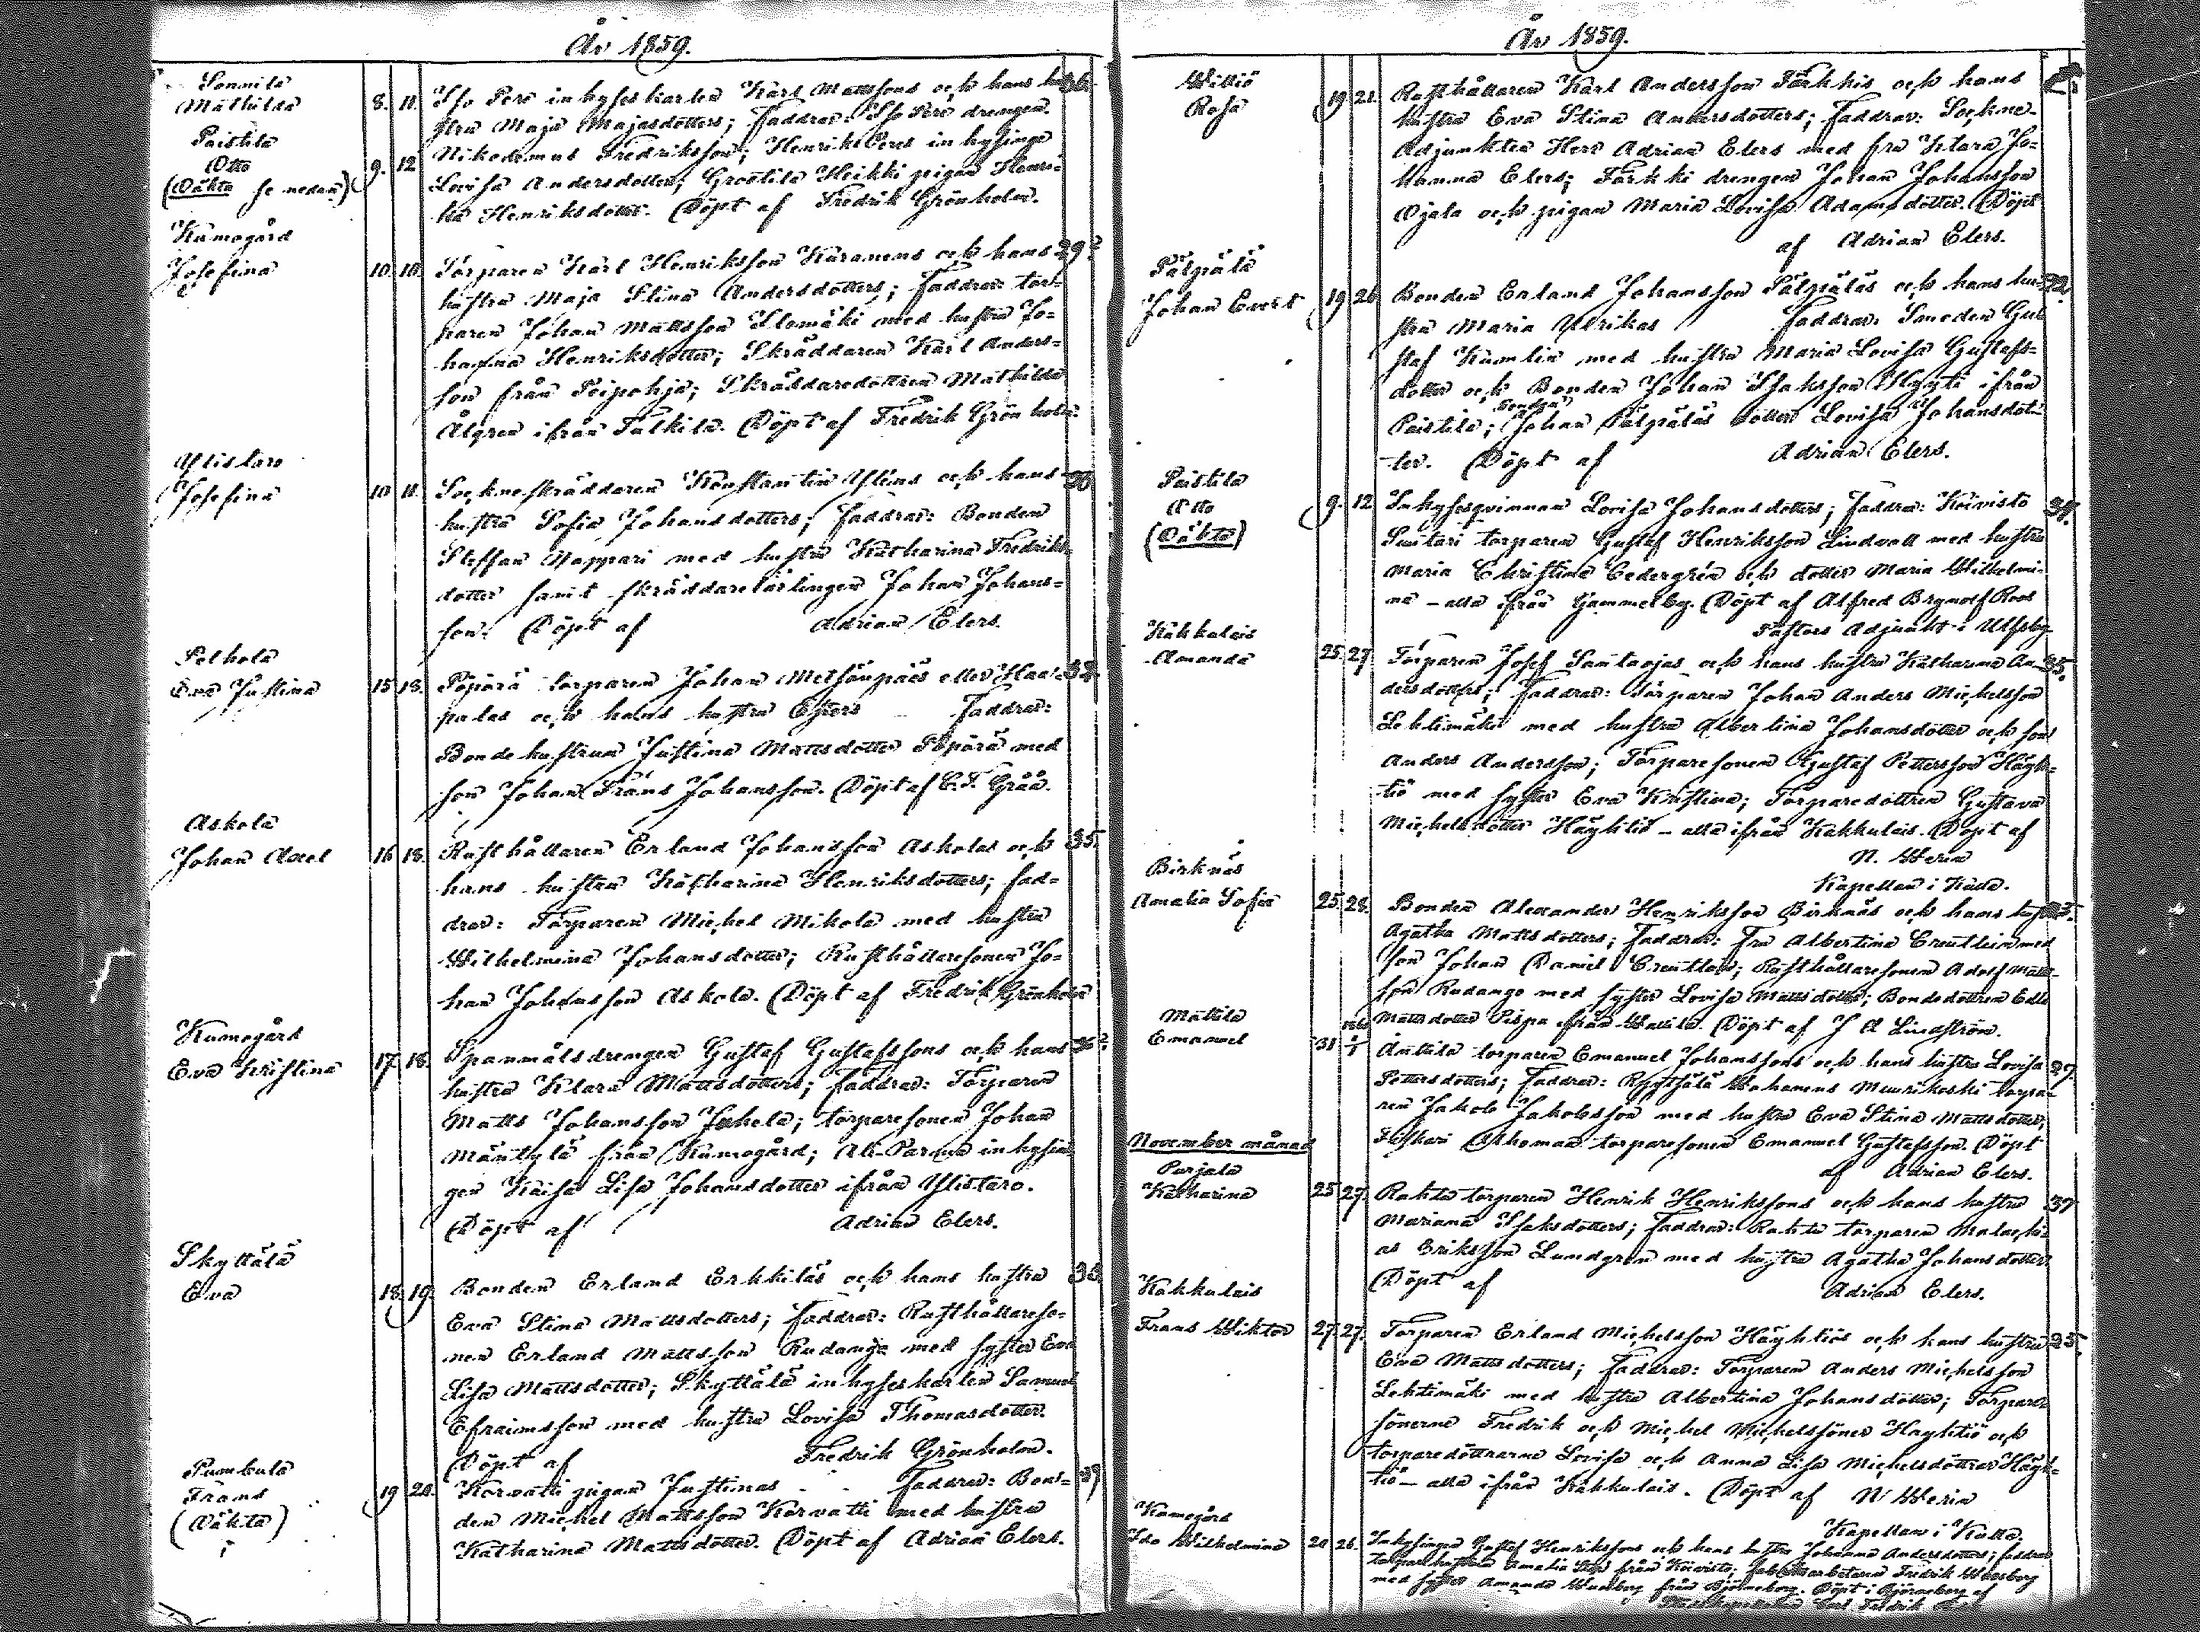 År 1859.
Sonnila
Mathilda 8. 11. Iso Pere inhyseskarlen Karl Mattssons och hans hu- 36.
stru Maja Majasdotters; Faddrar: Iso Pere drengen
Nikodemus Fredriksson; Henriks Peres inhysinge
Paistila
Otto 9. 12
(Oäkta se nedan)
Lovisa Andersdotter; Groetila Heikki pigan Henri-
ka Henriksdotter. Döpt af Fredrik Grönholm.
Kumogård
Josefina 10. 10. Torparen Karl Henriksson Karanens och hans 29
hustru Maja Stina Andersdotters; Faddrar: tor-
paren Johan Mattsson Slomäki med hustru Jo-
hanna Henriksdotter; Skräddaren Karl Anders-
son från Peipohja; Skräddaredottren Mathilda
Ålgren ifrån Tulkila. Döpt af Fredrik Grönholm.
Ylistaro
Josefina 10 11. Sockneskräddaren Konstantin Yleus och hans
hustru Sofia Johansdotters; Faddrar: Bonden
Steffan Nappari med hustru Katharina Fredriks-
dotter samt skräddarelärlingen Johan Johans-
son. Döpt af Adrian Elers.
Pelhola
Eva Justina 15 18. Pöpörä torparen Johan Metsänpääs eller Haa-
palas och hans hustru Esters Faddrar:
Bondehustrun Justina Mattsdotter Pöpörä med
son Johan Frans Johansson. Döpt af C. F. Gråå.
Askola
Johan Axel 16 18. Rusthållaren Erland Johansson Askolas och 35.
hans hustru Katharina Henriksdotters; Fad-
drar: Torparen Michel Mikola med hustru
Wilhelmina Johansdotter; Rusthållaresonen Jo-
han Johansson Askola. Döpt af Fredrik Grönholm
Kumogård
Eva Kristina 17. 18. Spanmålsdrengen Gustaf Gustafssons och hans
hustru Klara Mattsdotters; Faddrar: Torparen
Matts Johansson Juhela; torparesonen Johan
Mäntylä från Kumogård; Ali-Parma inhysin-
gen Kaisa Lisa Johansdotter ifrån Ylistaro.
Döpt af Adrian Elers.
Skyttälä
Eva 18. 19. Bonden Erland Erkkiläs och hans hustru 33.
Eva Stina Mattsdotters; Faddrar: Rusthållareso-
nen Erland Mattsson Rudanga med syster Eva
Lisa Mattsdotter; Skyttälä inhyseskarlen Samuel
Efraimsson med hustru Lovisa Thomasdotter.
Döpt af Fredrik Grönholm.
Pumbula
Frans 19 20. Korvatti pigan Justinas Faddrar: Bon-
(Oäkta)
den Michel Mattsson Korvatti med hustru
Katharina Mattsdotter. Döpt af Adrian Elers.
År 1859.
Willio
Rosa 19. 21. Rusthållaren Karl Andersson Tarkkis och hans
hustru Eva Stina Andersdotters; Faddrar: Sockne-
Adjunkten Herr Adrian Elers med fru Klara Jo-
hanna Elers; Tarkki drengen Johan Johansson
Ojala och pigan Maria Lovisa Adamsdotter. Döpt
af Adrian Elers.
Pälpälä
Johan Evert 19 26 Bonden Erland Johansson Pälpäläs och hans hu-
stru Maria Ulrikas Faddrar: Smeden Gu-
staf Kumlin med hustru Maria Lovisa Gustafs-
dotter och Bonden Johan Isaksson Hyyti ifrån
Paistila; Bonden Johan Pälpäläs dotter Lovisa Johansdot-
ter. Döpt af Adrian Elers.
Paistila
Otto 9. 12 Inhysesqvinnan Lovisa Johansdotters; Faddrar: Koivisto
(Oäkta)
Suntari torparen Gustaf Henriksson Lindvall med hustru
Maria Christina Cedergrén och dotter Maria Wilhelmi-
na – alla ifrån Gammelby. Döpt af Alfred Brynolf Roos
Pastors Adjunkt i Ulfsby
Kakkulais
Amanda 25. 27. Torparen Josef Santaojas och hans hustru Katharina An- 35.
dersdotters; Faddrar: Torparen Johan Anders Michelsson
Lehtimäki med hustru Albertina Johansdotter och son
Anders Andersson; Torparesonen Gustaf Pettersson Häyh-
tiö med syster Eva Kristina; Torparedottren Gustava
Michelsdotter Häyhtiö – alla ifrån Kakkulais. Döpt af
N. Weria
Kapellan i
Birknäs
Amalia Sofia 25. 28. Bonden Alexander Henriksson Birknäs och hans hustru
Agatha Mattsdotters; Faddrar: Fru Albertina Creutlein med
son Johan Daniel Creutlein; Rusthållaresonen Adolf Matts-
son Rudango med syster Lovisa Mattsdotter; Bondedottren Edla
Mattsdotter Pispa från Wattila. Döpt af J A Lindström.
Mattila
Emanuel 31 Anttila torparen Emanuel Johanssons och hans hustru Lovisa 27.
Pettersdotters; Faddrar: Wahanens Muurikoski torpa-
ren Jakob Jakobsson med hustru Eva Stina Mattsdotter;
Uthoman torparesonen Emanuel Gustafsson. Döpt
af Adrian Elers.
November månad
Purjala
Katharina 25 27. Rahta torparen Henrik Henrikssons och hans hustru 37
Mariana Isaksdotters; Faddrar: Rahta torparen Malachi-
as Eriksson Lundgren med hustru Agatha Johansdotter.
Döpt af Adrian Elers.
Kakkulais
Frans Wiktor 27. 27. Torparen Erland Michelsson Häyhtiös och hans hustru 25.
Eva Mattsdotters; Faddrar: Torparen Anders Michelsson
Lehtimäki med hustru Albertina Johansdotter; Torpare-
sönerne Fredrik och Michel Michelssöner Häyhtiö och
torparedöttrarne Lovisa och Anna Lisa Michelsdöttrar Häyh-
tiö – alla ifrån Kakkulais. Döpt af N. Weria
Kapellan i
Kumogård
Ida Wilhelmina 20 26. Inhysingen Gustaf Henrikssons och hans hustru Johanna Andersdotters; Faddrar
torparehustrun Amalia från Koivisto; Fabriksarbetaren Fredrik
med syster Amanda från Björneborg. Döpt i Björneborg af
Carl Fredrik